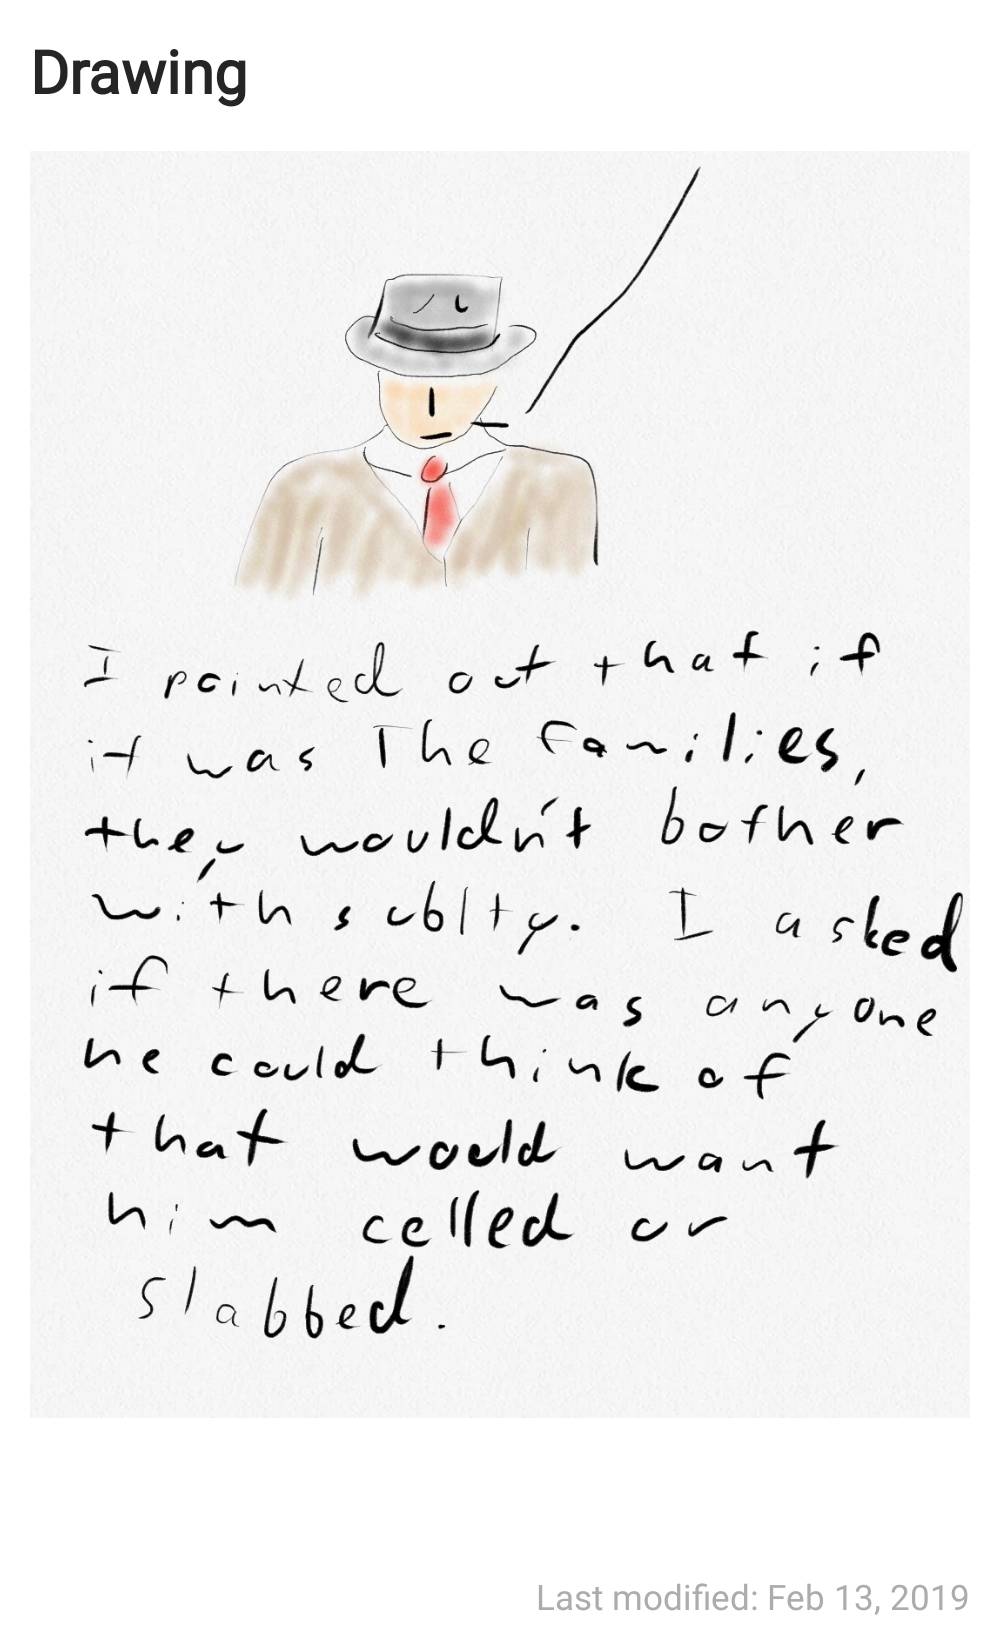 Drawing
I pointed out that if
it was The families,
they wouldn't bother
with sublty. I asked
if there was anyone
he could think of
that would want
him celled or
slabbed.
Last modified: Feb 13, 2019